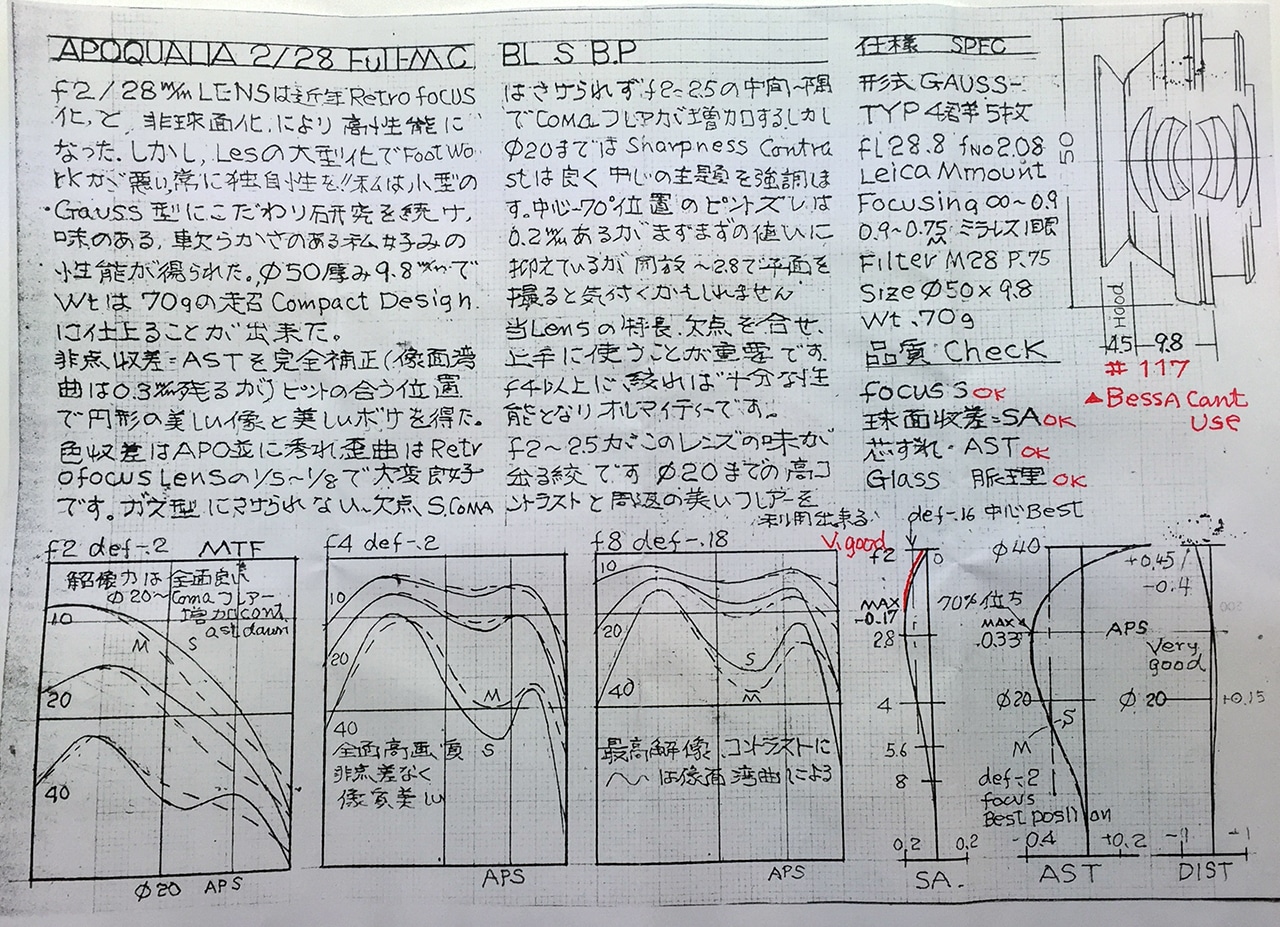 APOQUALIA 2/28 Full-MC BL S B.P
f2/28m/m LENSは近年Retro focus
化と、非球面化により高性能に
なった.しかし,Lesの大型化でFootWo-
rkが悪い,常に独自性を!!私は小型の
Gauss型にこだわり研究を続け,
味のある,軟らかさのある私好みの
性能が得られた.φ50厚み9.8m/mで
Wtは70gの超Compact Design
に仕上ることが出来た。
非点収差=ASTを完全補正(像面湾
曲は0.3m/m残るが)ピントの合う位置
で円形の美しい像と美しいボケを得た.
色収差はAPO並に秀れ歪曲はRetr
ofocus Lensの1/5~1/8で大変良好
です.ガウス型にさけられない欠点 S.COMA
はさけられずf2=2.5の中間~隅
でComaフレアが増加する,しかし
φ20まではSharpness Contra
stは良く中心の主題を強調しま
す.中心-70%位置のピントズレは
0.2m/mあるがまずまずの値いに
抑えているが開放~2.8で平面を
撮ると気付くかもしれません
当Lensの特長.欠点を合せ、
上手に使うことが重要です.
f4以上に、絞れば十分な性
能となりオルマイティーです。
f2~2.5がこのレンズの味が
出る絞です φ20までの高コ
ントラストと周辺の美しいフレアーを
利用出来る
仕様 SPEC
形式 GAUSS-
TYP 4群5枚
fL 28.8 fNo 2.08
Leica M mount
Focusing ∞~0.9
0.9~0.75M ミラレス1眼
Filter M28 P.75
Size φ50×9.8
Wt、70g
品質 Check
focus S OK
球面収差=SA OK
芯ずれ・AST OK
Glass 脈理 OK
50
Hood
4.5 9.8
# 117
▲BessA Cant
Use
f2 def-.2 MTF
解像力は全面良い
φ20~Comaフレアー
増加cont
ast down
10
M S
20
40
φ20 APS
f4 def-.2
10
20
40
M
S
全面高画質
非点差なく
像質美しい
APS
f8 def-.18
10
20
40
S
M
最高解像、コントラストに
は像面湾曲による
APS
V.good
def-.16 中心Best
f2 0
MAX
-0.17
2.8
4
5.6
8
0.2 0.2
SA.
φ40
70%位ち
MAX
.0.33
φ20
S
M
def-.2
focus
Best position
-0.4 +0.2
AST
+0.45
-0.4
APS
Very
good
φ20
+0.15
-1 +1
DIST